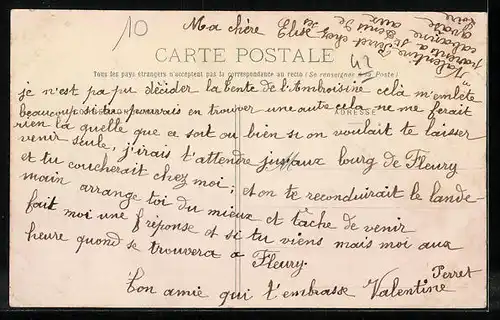 10
Ma chère Elise
CARTE POSTALE
42
Tous les pays étrangers n'acceptent pas la correspondance au recto (Se renseigner à la Poste)
je n'est pa pu décider la tente de l'Ambroisine celà m'embête
beaucoup si tu pourrais en trouver une autre cela ne me ferait
ADRESSE
rien la quelle que ce soit ou bien si on voulait te laisser
venir seule, j'irais t'attendre jusaux bourg de Fleury
et tu coucherait chez moi; et on te reconduirait le lande-
main arrange toi du mieux et tâche de venir
fait moi une réponse et si tu viens mais moi aux
heure quond se trouvera a Fleury.
Ton amie qui t'embrasse Valentine Perret
Valentine Perret chez